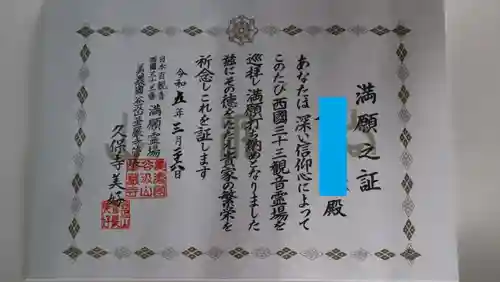 満願之証
殿
あなたは深い信仰心によって
このたび西國三十三観音霊場を
巡拝し満願打ち納めとなりました
茲にその徳をたたえ貴家の繁栄を
祈念しこれを証します
令和五年三月二十六日
日本百観音
西國三十三番 満願霊場
美濃國谷汲山華厳寺